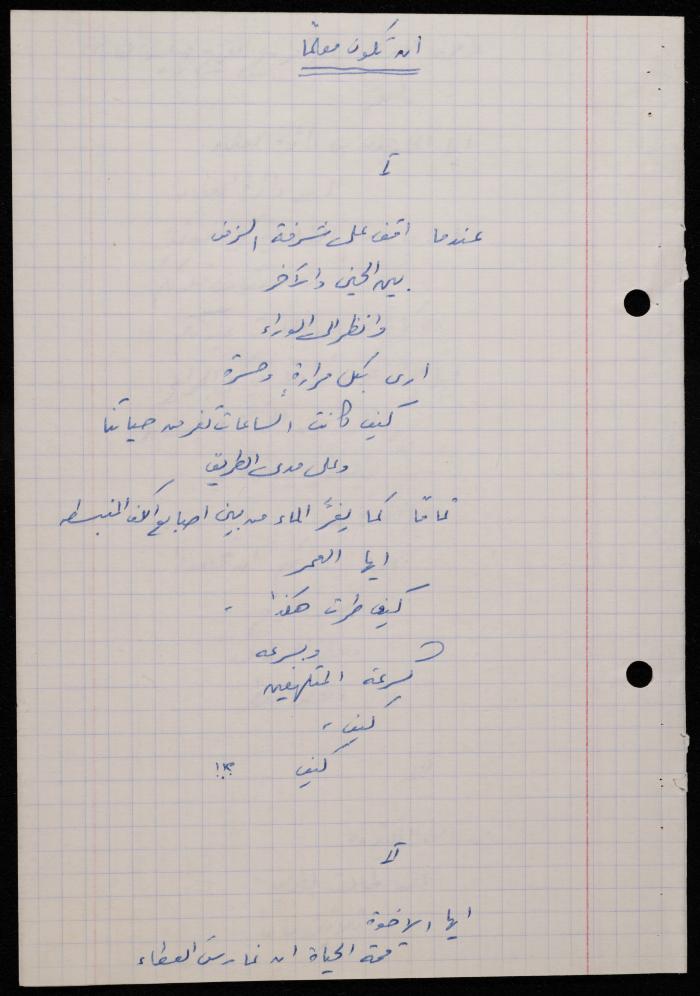 ان تكون معلمًا
I
عندما اقف على شرفة الزمن
بين الحين والآخر
وانظر الى الوراء
ارى بكل مرارةٍ وحسرة
كيف كانت الساعات تفر من حياتنا
وعلى مدى الطريق
تمامًا كما يفرُّ الماء من بين اصابع الكف المنبسطه
ايها العمر
كيف طرت هكذا
وبسرعه
كسرعة المتلهفين
كيف
كيف ؟!
II
ايها الإخوة
قمة الحياة ان نمارس العطاء